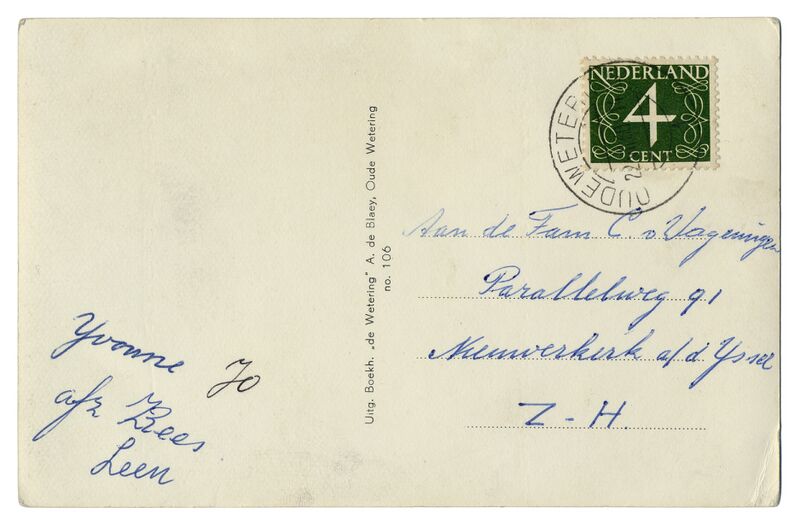 NEDERLAND
4
CENT
OUDEWETER
Aan de Fam C v Wageningen
Parallelweg 91
Nieuwerkerk a/d Yssel
Z-H.
Uitg. Boekh. „de Wetering" A. de Blaey, Oude Wetering
no. 106
Yvonne Jo
afz Kees
Leen